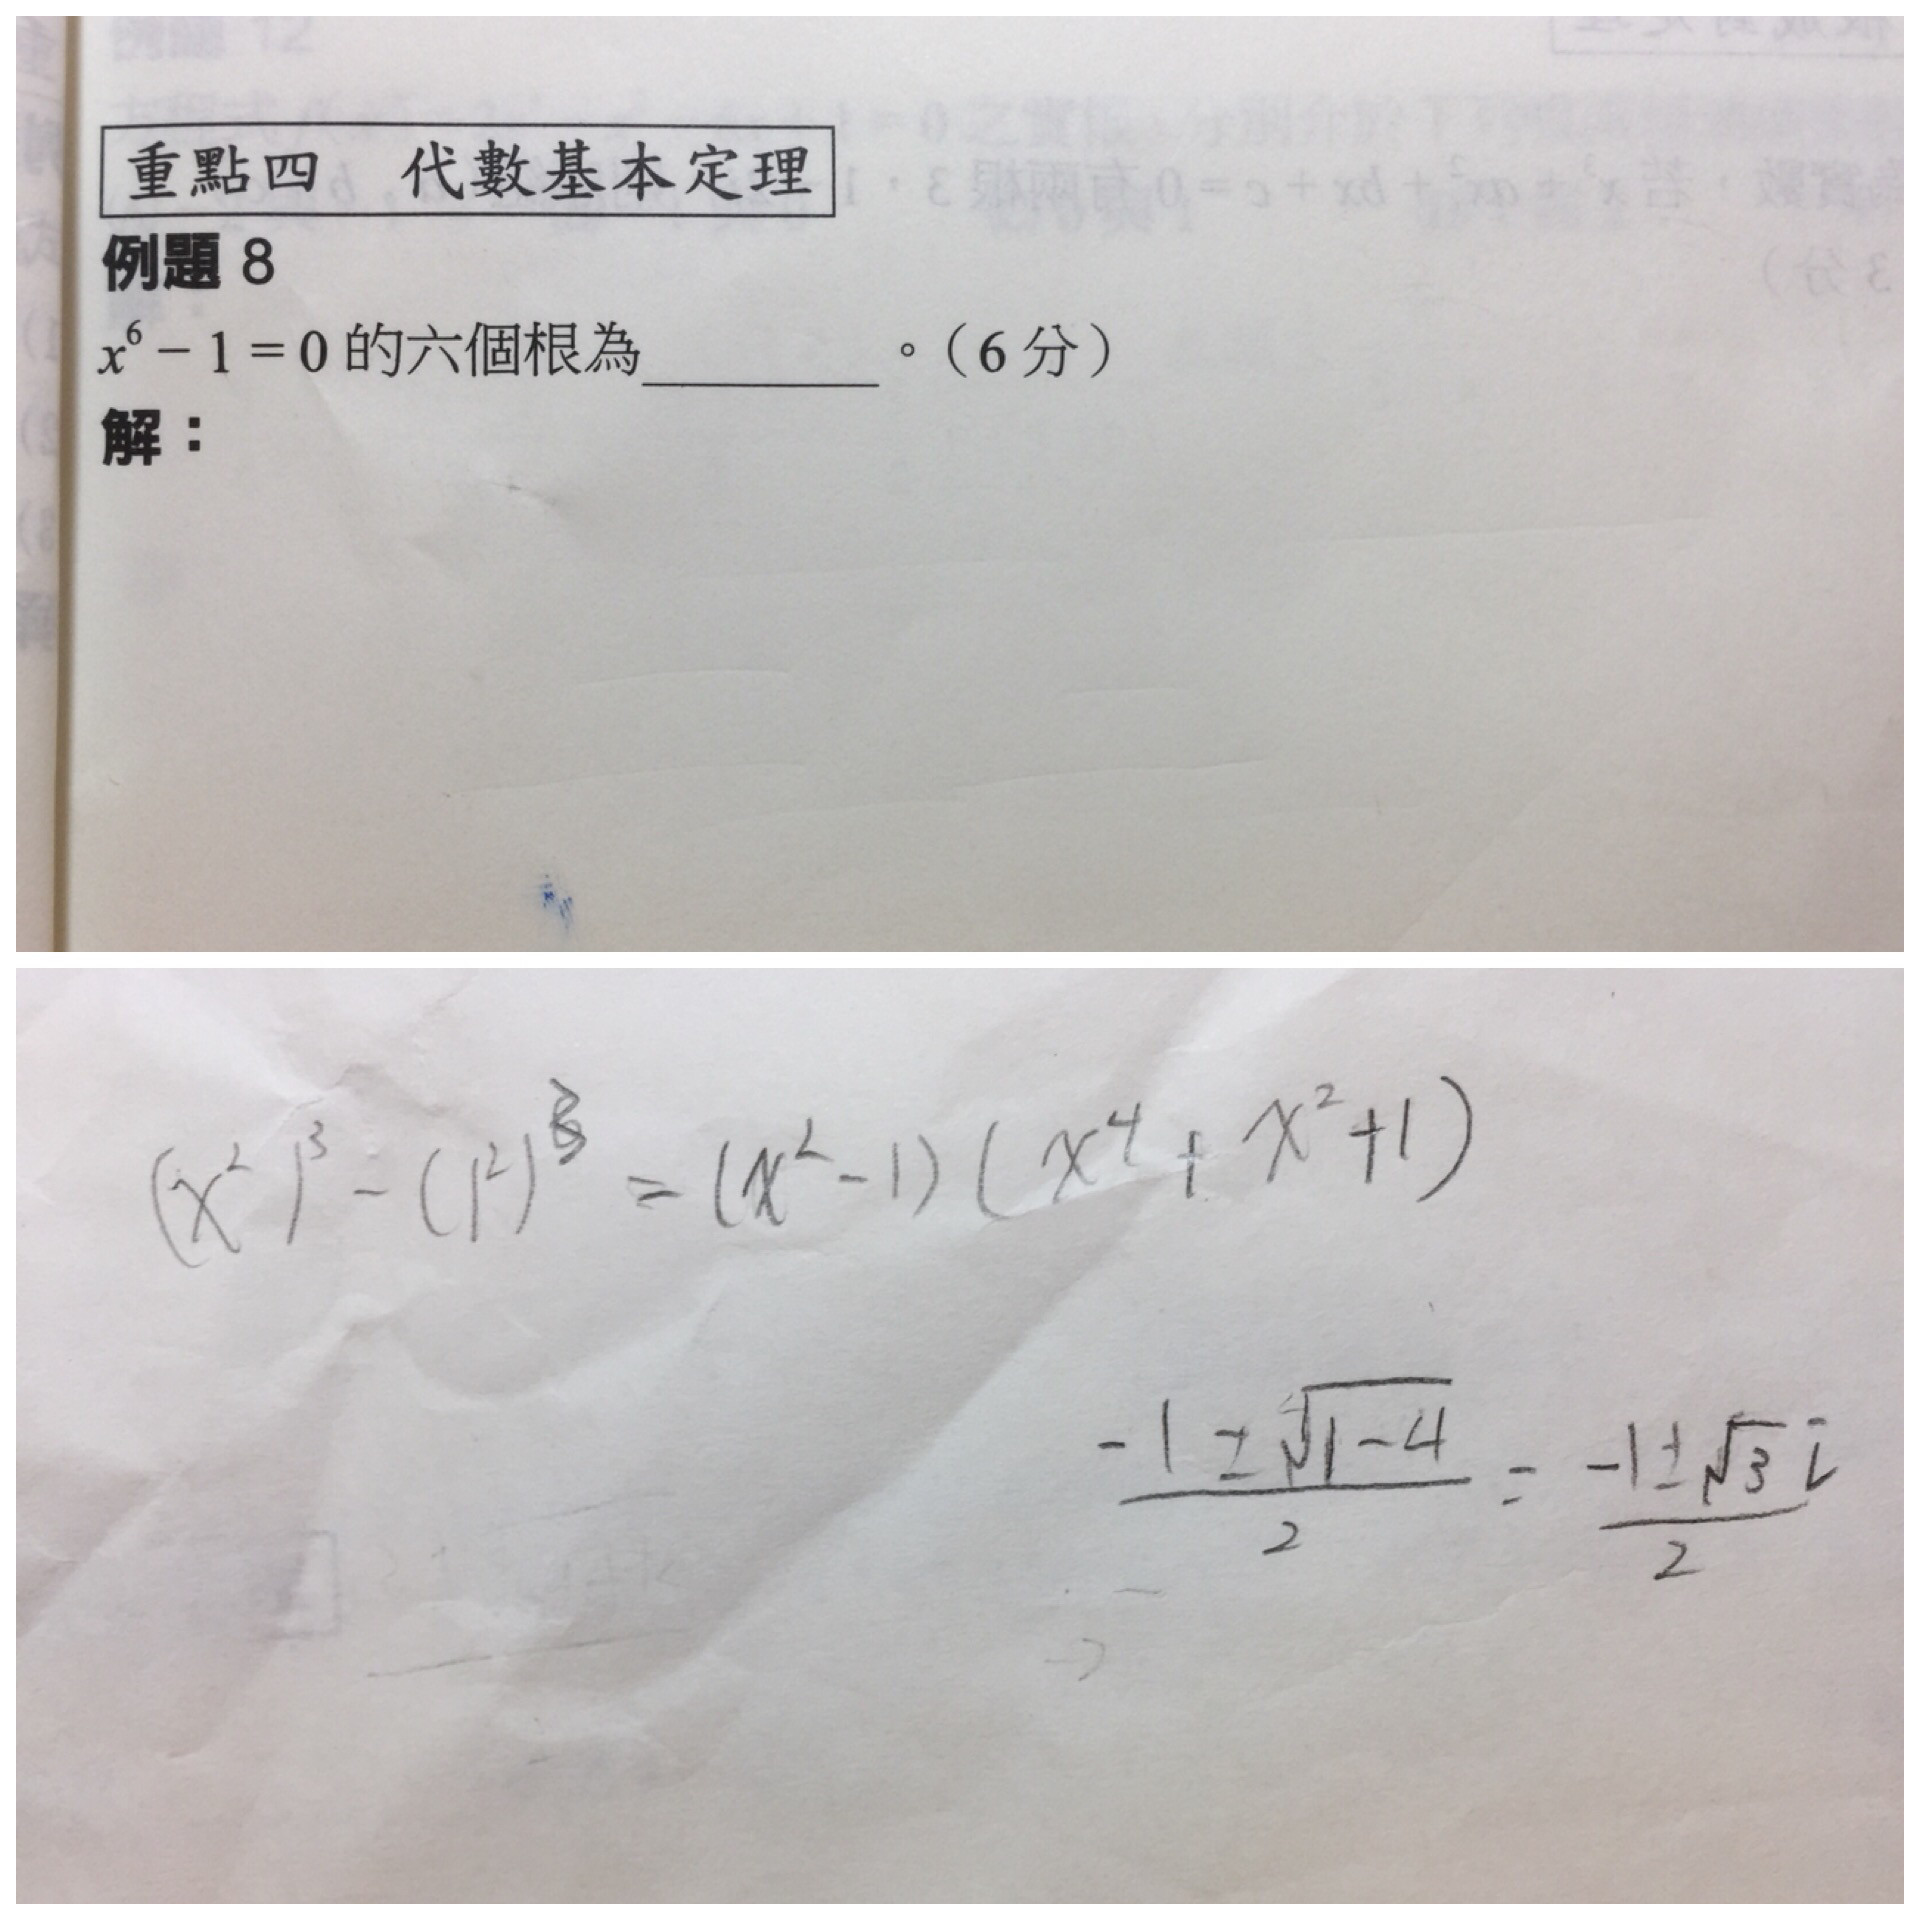 重點四 代數基本定理
例題 8
x⁶ − 1 = 0 的六個根為________。（6 分）
解：
(x²)³ − (1²)³ = (x² − 1)(x⁴ + x² + 1)
(-1 ± √(1−4))/2 = (-1 ± √3 i)/2